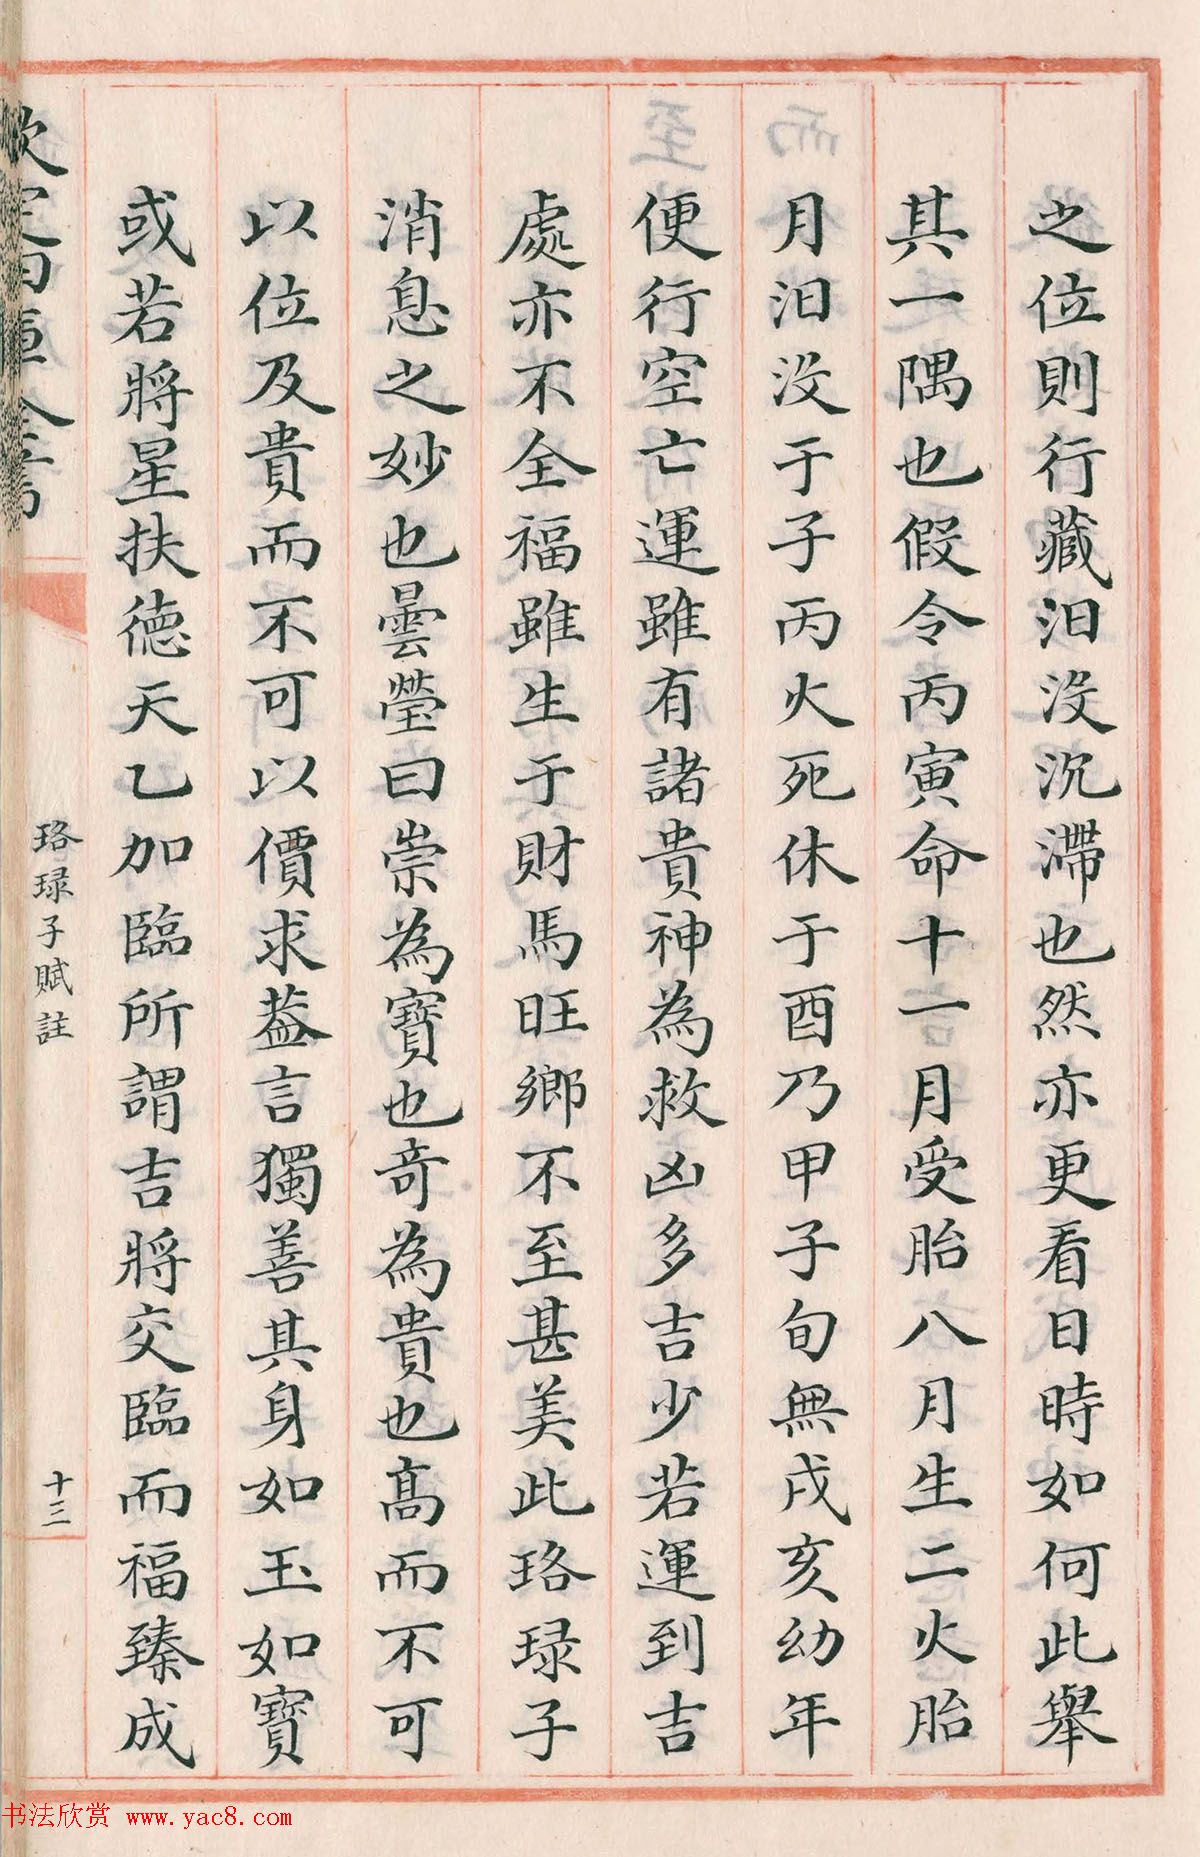 之位則行藏汨沒沉滯也然亦更看日時如何此舉
其一隅也假令丙寅命十一月受胎八月生二火胎
月汨沒于子丙火死休于酉乃甲子旬無戌亥幼年
便行空亡運雖有諸貴神為救凶多吉少若運到吉
處亦不全福雖生于財馬旺鄉不至甚美此珞琭子
消息之妙也曇瑩曰崇為寶也奇為貴也高而不可
以位及貴而不可以價求葢言獨善其身如玉如寶
或若將星扶德天乙加臨所謂吉將交臨而福臻成
欽定四庫全書
珞琭子賦註
十三
书法欣赏 www.yac8.com